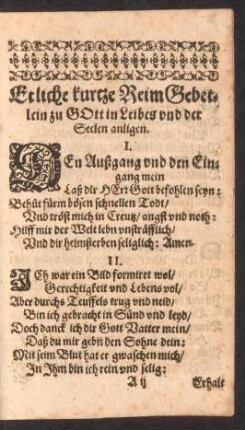 Etliche kurtze Reim Gebet-
lein zu GOtt in Leibes vnd der
Seelen anligen.
I.
DEn Außgang vnd den Ein-
gang mein
Laß dir HErr Gott befohlen seyn:
Behüt fürm bösen schnellen Todt/
Vnd tröst mich in Creutz/ angst vnd noth:
Hilff mir der Welt lebn vnsträfflich/
Vnd dir heimsterben seliglich: Amen.
II.
ICh war ein Bild formiret wol/
Gerechtigkeit vnd Lebens vol/
Aber durchs Teuffels trug vnd neid/
Bin ich gebracht in Sünd vnd leyd/
Doch danck ich dir Gott Vatter mein/
Daß du mir gebn den Sohne dein:
Mit seim Blut hat er gwaschen mich/
In Jhm bin ich rein vnd selig:
A ij Erhalt